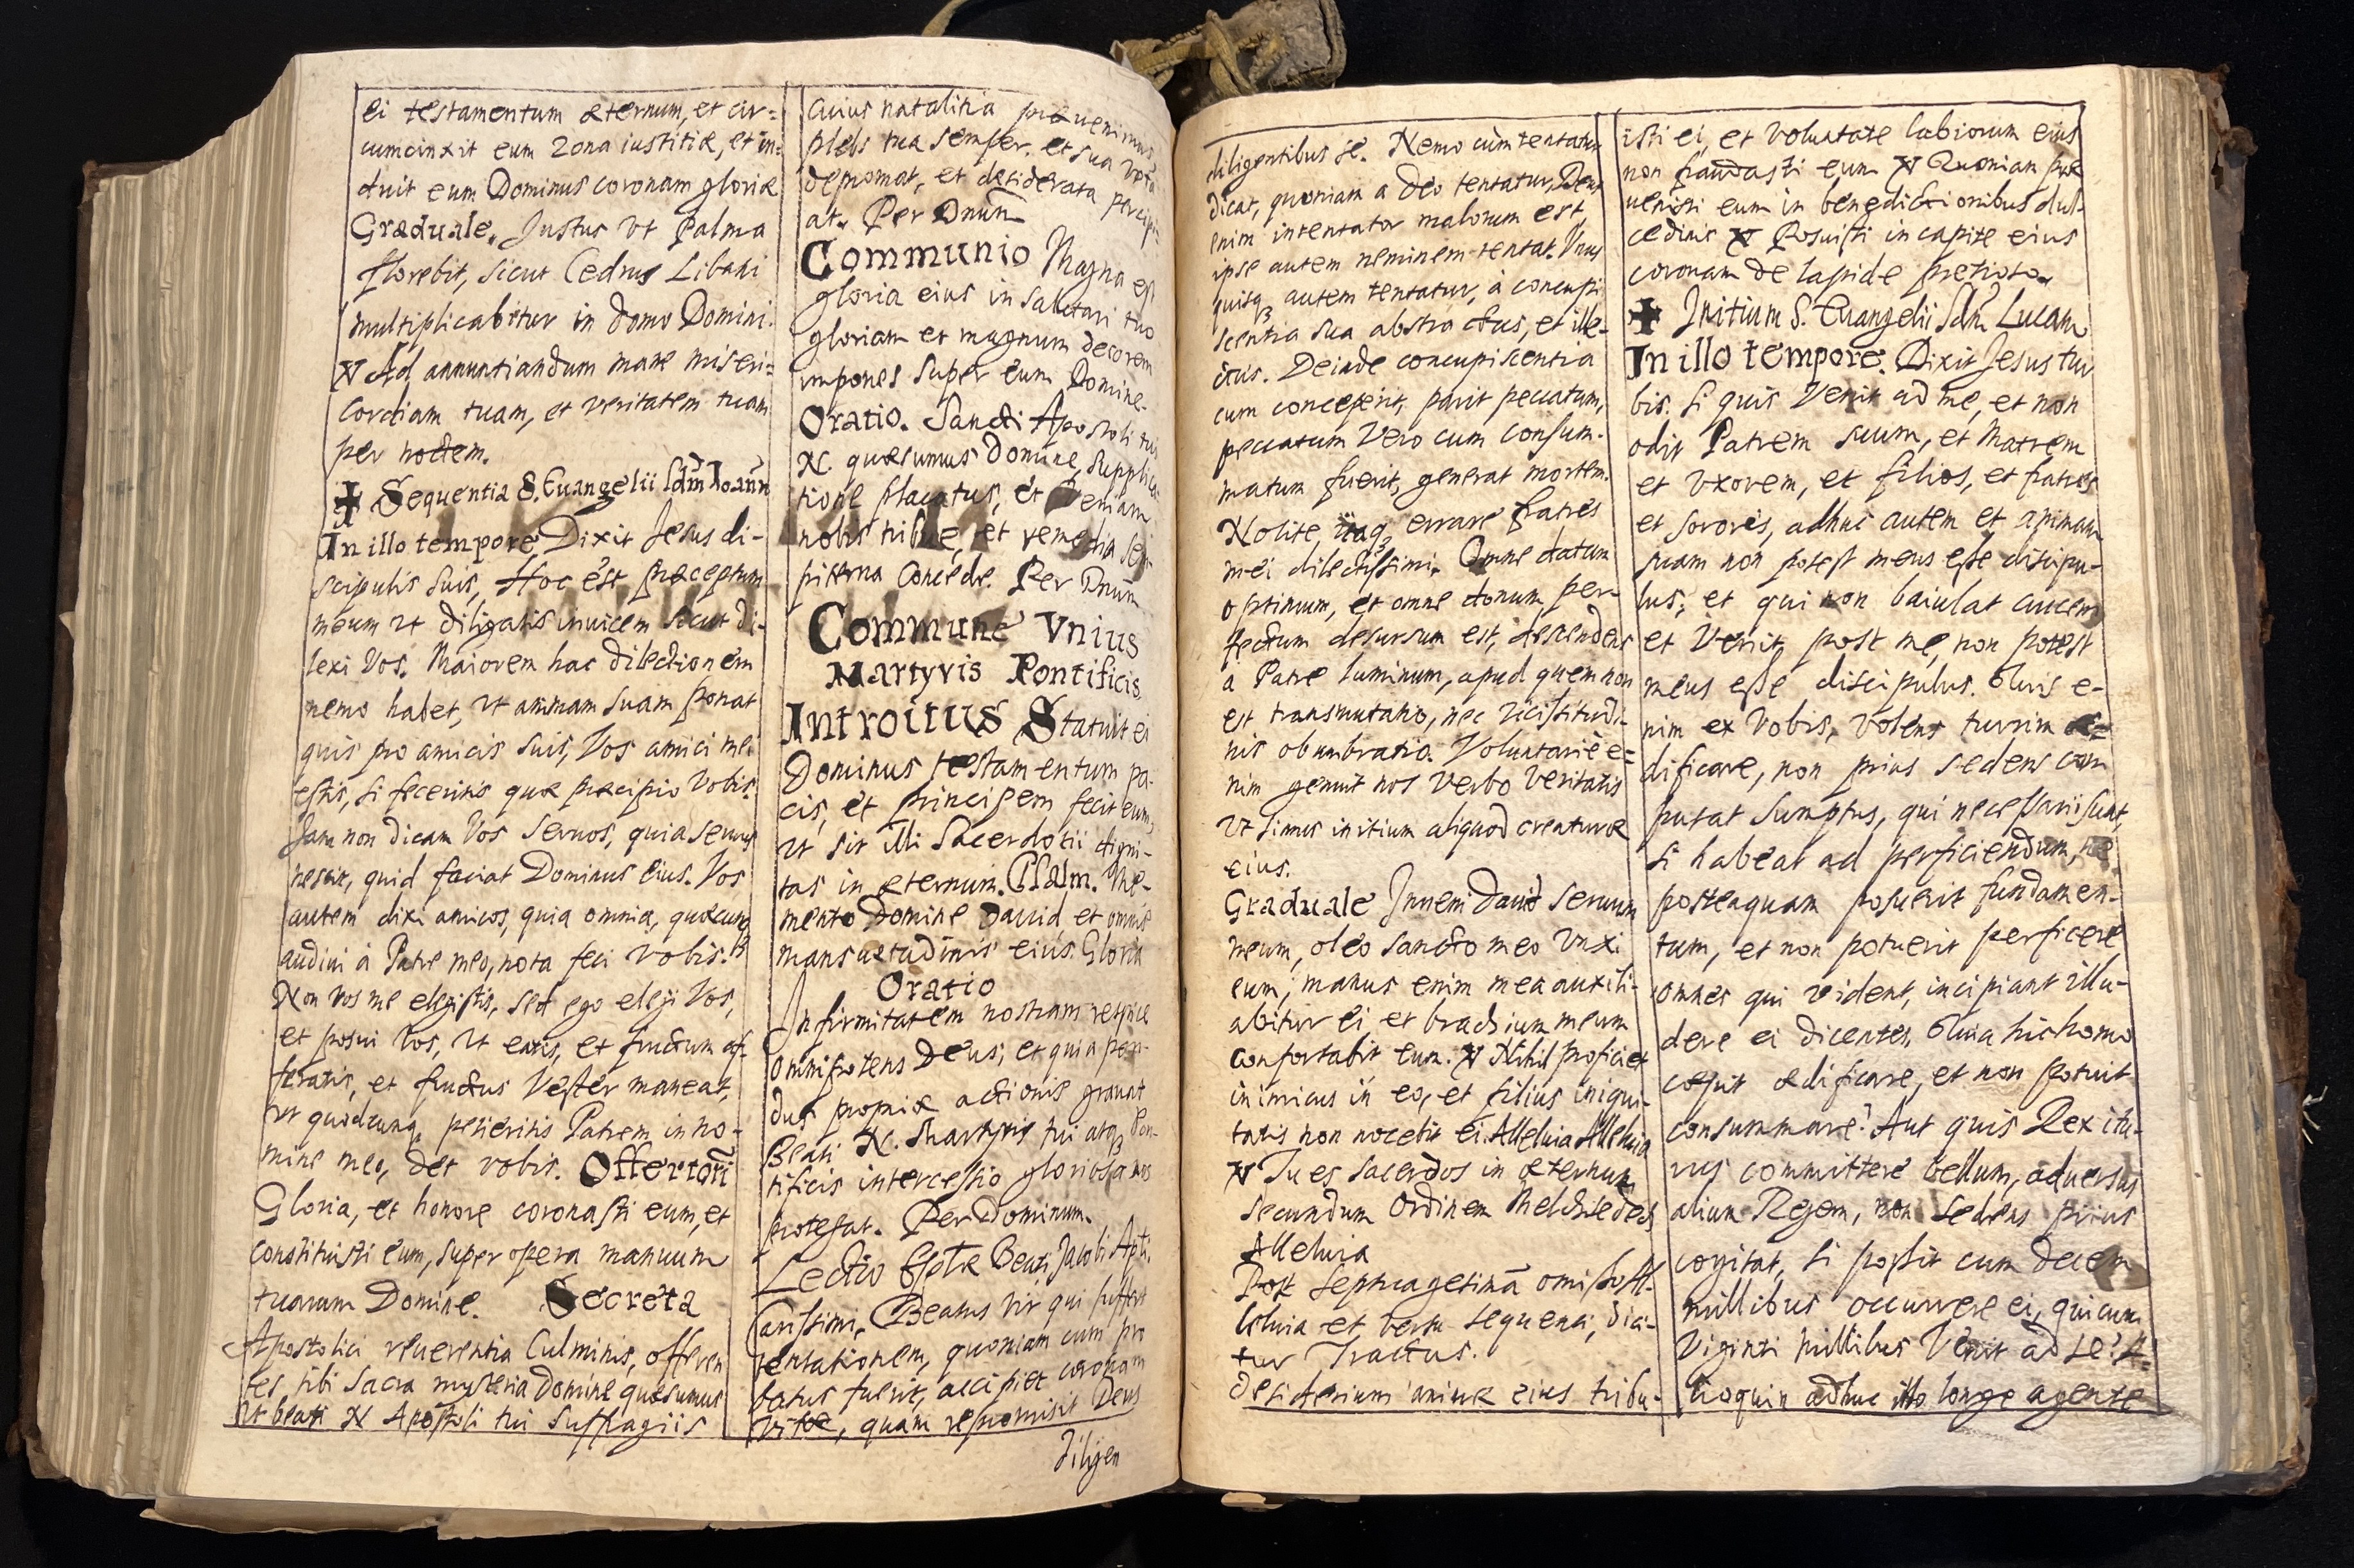 ei testamentum æternum, et cir=
cumcinxit eum zona iustitiæ, et in=
duit eum Dominus coronam gloriæ
Graduale. Justus vt Palma
florebit, sicut Cedrus Libani
multiplicabitur in domo Domini.
℣ Ad annuntiandum mane miseri=
cordiam tuam, et veritatem tuam
per noctem.
✠ Sequentia S. Euangelii scdm̃ Joann̄
In illo tempore Dixit Jesus di-
scipulis suis, Hoc est præceptum
meum vt diligatis inuicem sicut di-
lexi Vos. Maiorem hac dilectionem
nemo habet, vt animam suam ponat
quis pro amicis suis, Vos amici mei
estis, si feceritis quæ præcipio Vobis.
Jam non dicam Vos seruos, quia seruus
nescit, quid faciat Dominus eius. Vos
autem dixi amicos, quia omnia, quæcunqꝫ
audiui à Patre meo, nota feci vobis.
Non vos me elegistis, sed ego elegi Vos,
et posui Vos, vt eatis, et fructum af-
feratis, et fructus Vester maneat,
vt quodcunqꝫ petieritis Patrem in no-
mine meo, det vobis. Offertorī
Gloria, et honore coronasti eum, et
constituisti eum, super opera manuum
tuarum Domine. Secreta
Apostolici reuerentia Culminis, offeren
tes tibi sacra mysteria Domine quæsumus
vt beati N Apostoli tui suffragiis
cuius natalitia præuenimus,
plebs tua semper, et sua vota
depromat, et desiderata percipi-
at. Per Dnūm
Communio Magna est
gloria eius in salutari tuo
gloriam et magnum decorem
impones super eum Domine.
Oratio. Sancti Apostoli tui
N. quæsumus Domine, supplica-
tione placatus, et Veniam
nobis tribue, et remedia sem
piterna concede. Per Dnūm
Commune Vnius
Martyris Pontificis
Introitus Statuit ei
Dominus testamentum pa-
cis, et principem fecit eum,
vt sit illi sacerdotii digni-
tas in æternum. Psalm. Me-
mento Domine Dauid et omnis
mansuetudinis eius. Gloria
Oratio
Infirmitatem nostram respice
omnipotens Deus; et quia pon-
dus propriæ actionis grauat
Beati N. Martyris tui atqꝫ Pon-
tificis intercessio gloriosa nos
protegat. Per Dominum.
Lectio Epl̄æ Beati Jacobi Apti.
Carissimi, Beatus vir qui suffert
tentationem, quoniam cum pro
batus fuerit, accipiet coronam
vitæ, quam repromisit Deus
diligen
diligentibus se. Nemo cùm tentatur
dicat, quoniam a Deo tentatur, Deus
enim intentator malorum est,
ipse autem neminem tentat. Vnus
quisqꝫ autem tentatur, à concupi
scentia sua abstractus, et ille-
ctus. Deinde concupiscentia
cum conceperit, parit peccatum,
peccatum Vero cum consum-
matum fuerit, generat mortem.
Nolite, itaqꝫ errare fratres
mei dilectissimi. Omne datum
optimum, et omne donum per-
fectum desursum est, descendens
a Patre luminum, apud quem non
est transmutatio, nec vicissitudi-
nis obumbratio. Voluntariè e=
nim genuit nos Verbo Veritatis
vt simus initium aliquod creaturæ
eius.
Graduale Inueni Dauid seruum
meum, oleo sancto meo vnxi
eum; manus enim mea auxili-
abitur ei, et brachium meum
confortabit eum. ℣ Nihil proficiet
inimicus in eo, et filius iniqui-
tatis non nocebit ei. Alleluia Alleluia
℣ Tu es Sacerdos in æternum
secundum Ordinem Melchisedech
Alleluia
Post Septuagesimā omisso All-
leluia et versu sequenti, dici-
tur Tractus.
Desiderium animæ eius tribu-
isti ei, et voluntate labiorum eius
non fraudasti eum ℣ Quoniam præ
uenisti eum in benedictionibus dul-
cedinis ℣ Posuisti in capite eius
coronam de lapide pretioso.
✠ Initium S. Euangelii scdm̃ Lucam
In illo tempore. Dixit Jesus tur
bis. Si quis Venit ad me, et non
odit Patrem suum, et Matrem
et vxorem, et filios, et fratres
et sorores, adhuc autem et animam
suam non potest meus esse discipu-
lus; et qui non baiulat crucem
et Venit post me, non potest
meus esse discipulus. Quis e-
nim ex Vobis, volens turrim æ=
dificare, non prius sedens com
putat sumptus, qui necessarii sunt,
si habeat ad perficiendum, ne
posteaquam posuerit fundamen-
tum, et non potuerit perficere
omnes qui vident, incipiant illu-
dere ei dicentes. Quia hic homo
cœpit ædificare, et non potuit
consummare? Aut quis Rex itu-
rus committere bellum, aduersus
alium Regem, non sedens prius
cogitat, si possit cum decem
millibus occurrere ei, qui cum
Viginti millibus Venit ad se? A-
lioquin adhuc illo longe agente